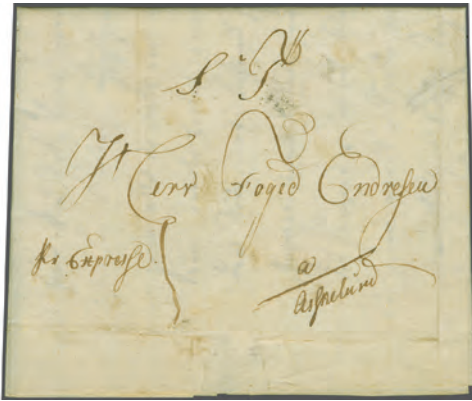 S. T.
Herr Foged Endresen
pr Expresse.
a
Askelund